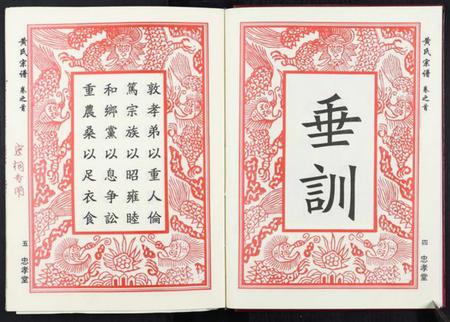 黄氏宗譜 卷之首
垂訓
四 忠孝堂
敦孝弟以重人倫
篤宗族以昭雍睦
和鄉黨以息爭訟
重農桑以足衣食
五 忠孝堂
黄氏宗譜 卷之首